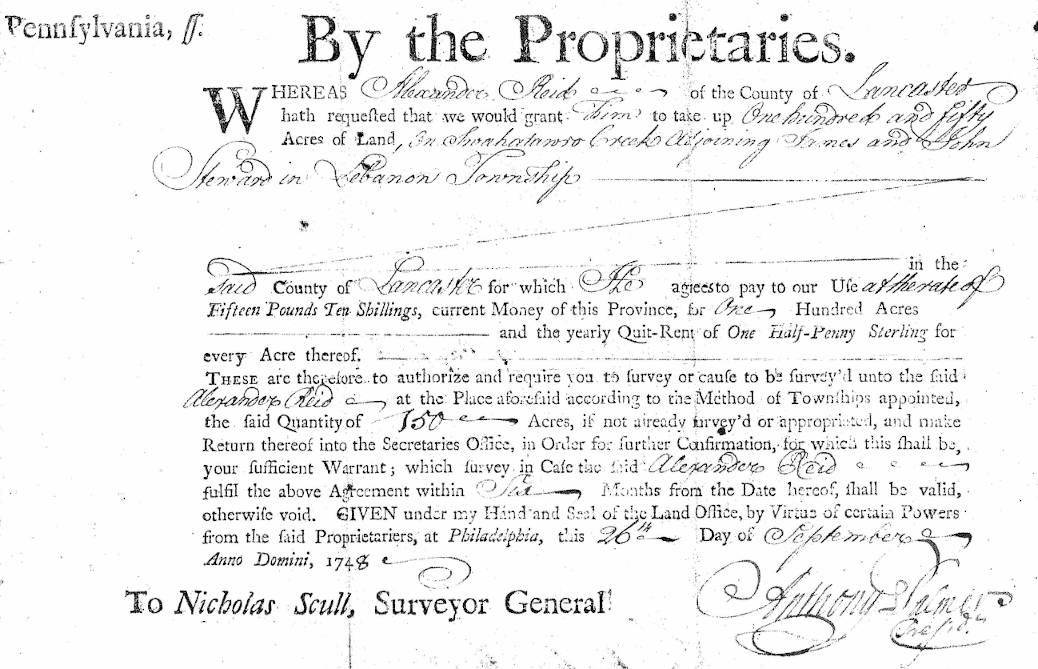 Pennſylvania, ſſ.
By the Proprietaries.
WHEREAS Alexander Reid of the County of Lancaster
hath requeſted that we would grant Him to take up One hundred and fifty
Acres of Land, On Swahatawro Creek Adjoining James and John
Steward in Lebanon Township
in the
Said County of Lancaster for which He agrees to pay to our Uſe at the rate of
Fifteen Pounds Ten Shillings, current Money of this Province, for One Hundred Acres
and the yearly Quit-Rent of One Half-Penny Sterling for
every Acre thereof.
THESE are therefore to authorize and require you to ſurvey or cauſe to be ſurvey'd unto the ſaid
Alexander Reid at the Place aforeſaid according to the Method of Townſhips appointed,
the ſaid Quantity of 150 Acres, if not already ſurvey'd or appropriated, and make
Return thereof into the Secretaries Office, in Order for further Confirmation, for which this ſhall be,
your ſufficient Warrant; which ſurvey in Caſe the ſaid Alexander Reid
fulfil the above Agreement within Six Months from the Date hereof, ſhall be valid,
otherwiſe void. GIVEN under my Hand and Seal of the Land Office, by Virtue of certain Powers
from the ſaid Proprietariers, at Philadelphia, this 26th Day of September
Anno Domini, 1748
To Nicholas Scull, Surveyor General
Anthony Palmer
Presid.t